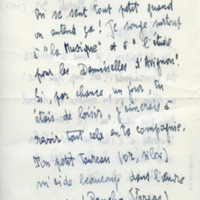 On se sent tout petit quand
on entend ça! Je songe surtout
à "la Musique" et à "l'étude
pour les Demoiselles d'Avignon".
Si, par chance, un jour, tu
étais de loisir, j'aimerais à
revoir tout cela en ta compagnie.
Mon petit Taureau (or, silex)
m'aide beaucoup dans l'œuvre